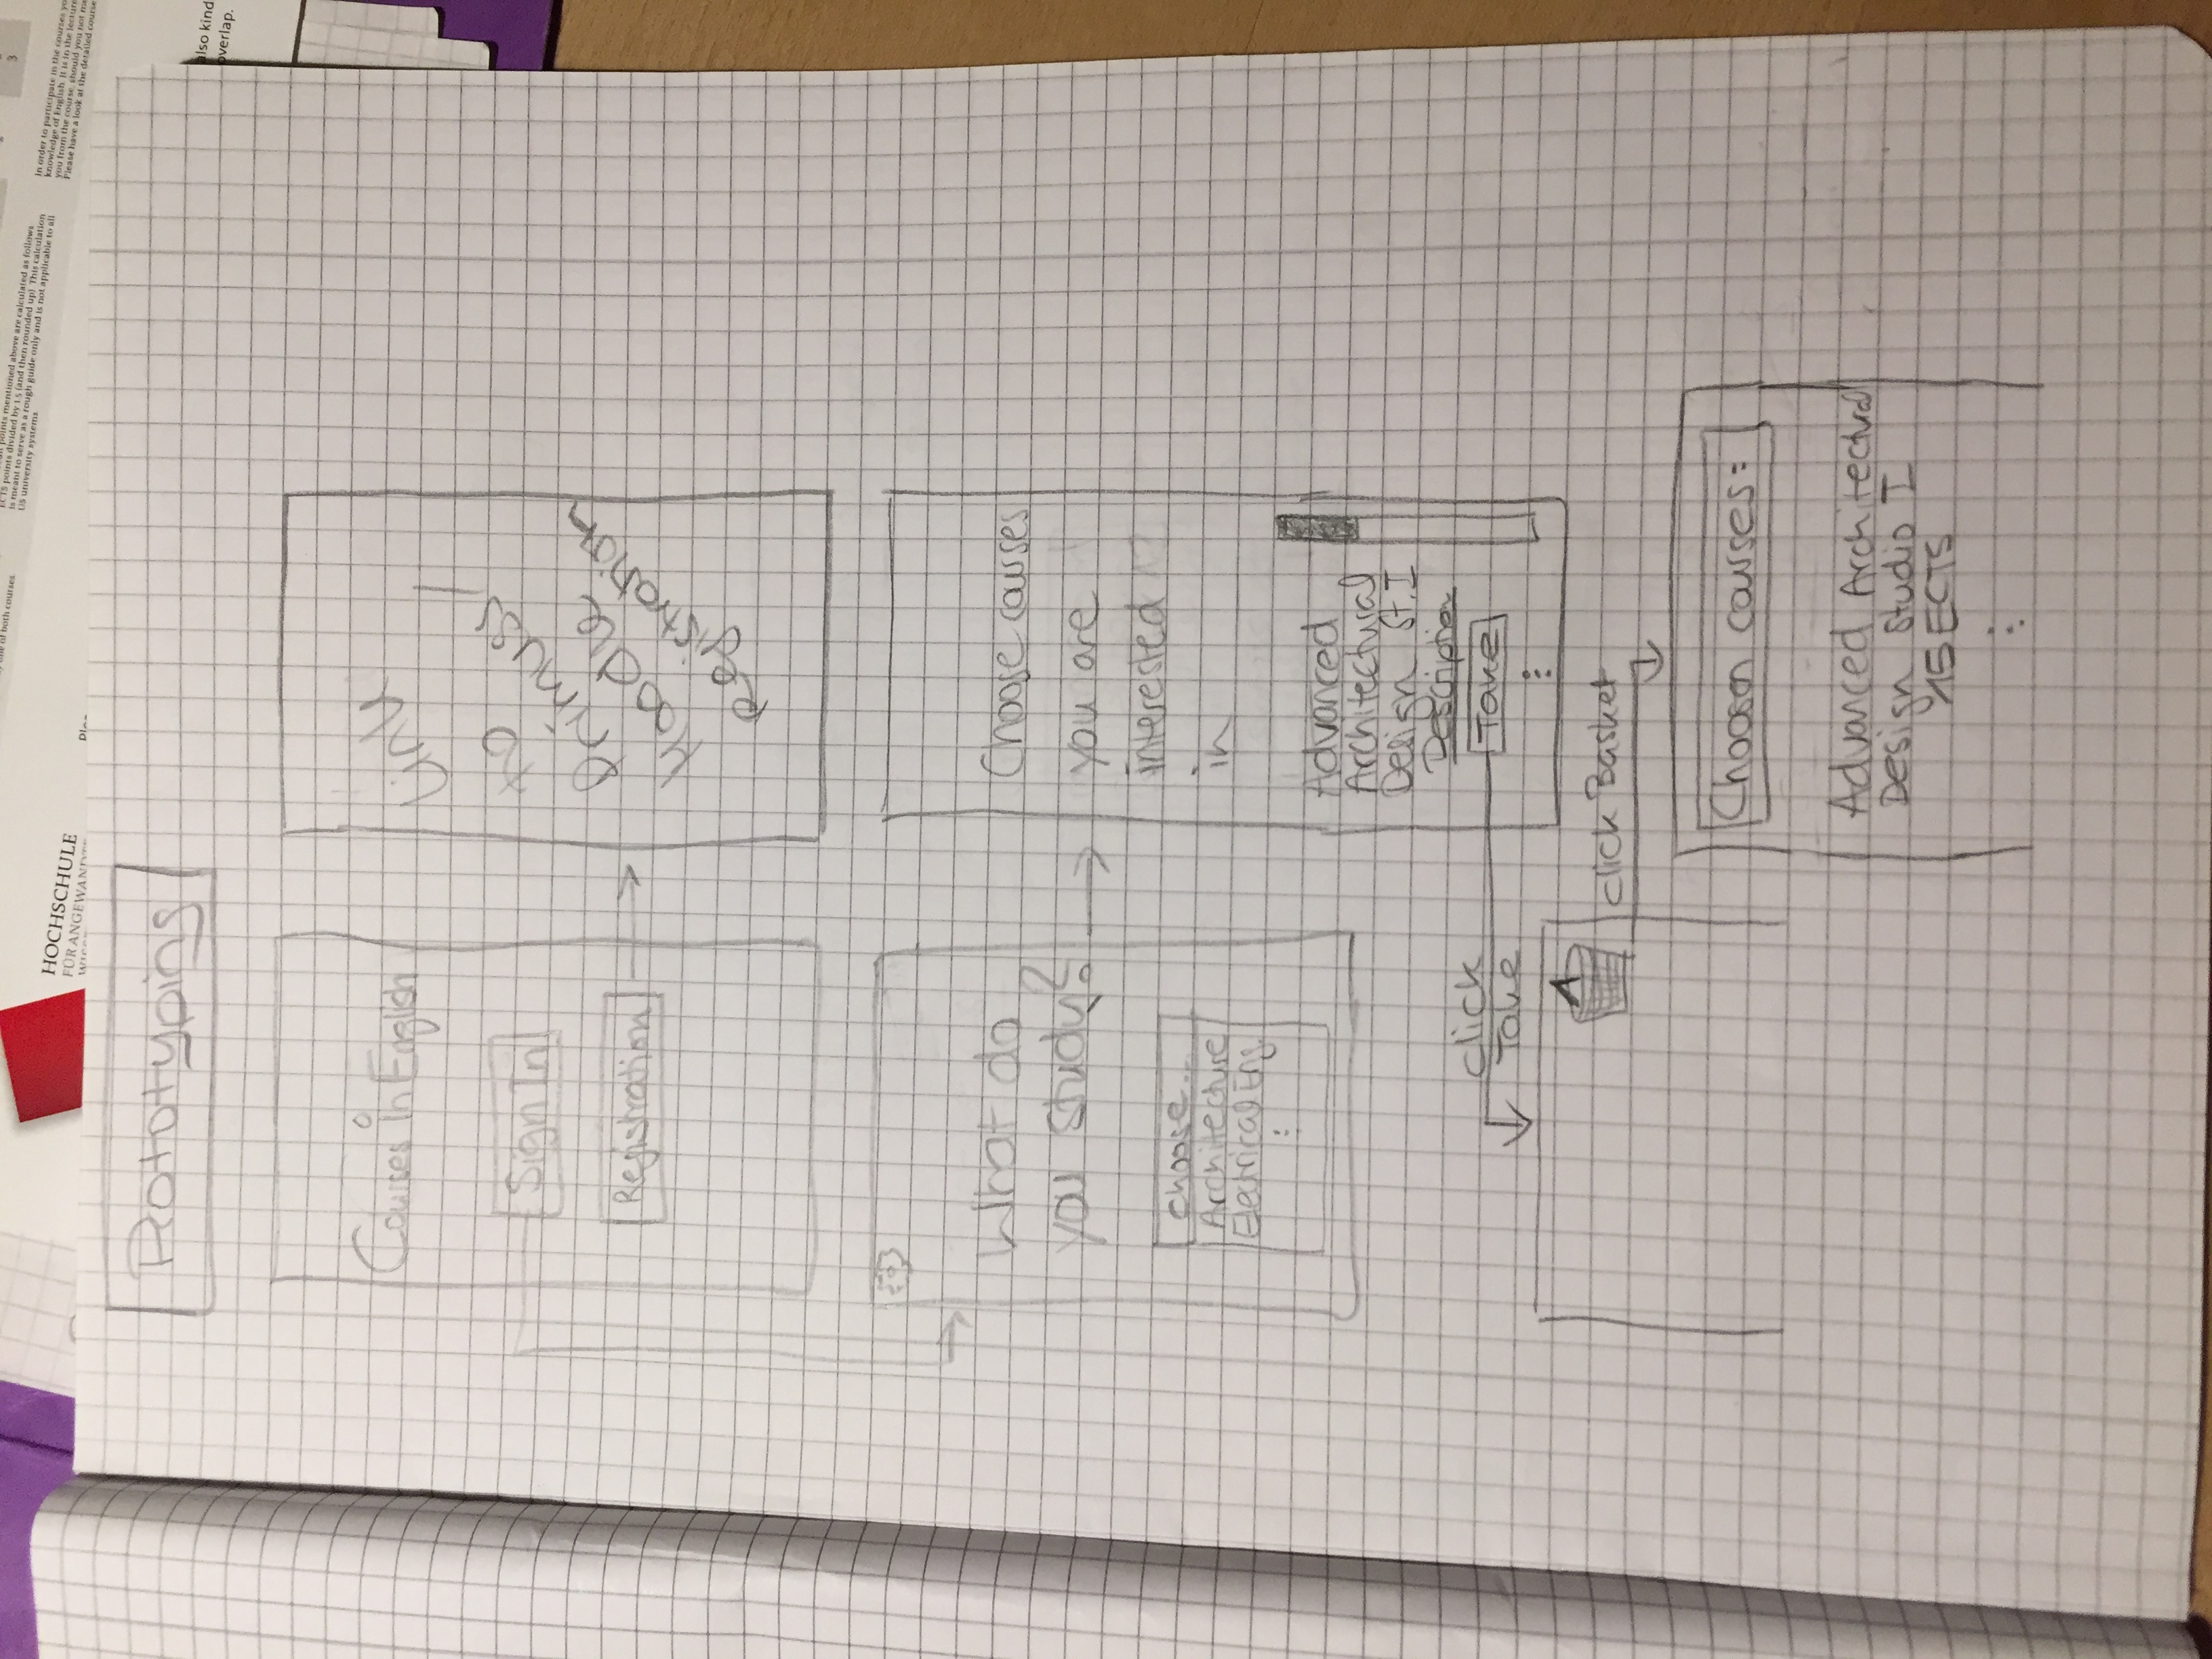 one of both courses.
points mentioned above are calculated as follows
ECTS points divided by 1.5 (and then rounded up). This calculation
is meant to serve as a rough guide only and is not applicable to all
US university systems
3
In order to participate in the courses
knowledge of English. It is in the lecture
you from the course, should you not
Please have a look at the detailed course
HOCHSCHULE
FÜR ANGEWANDTE
also kind
overlap.
Prototyping
Courses in English
Sign In
Registration
Link
to
Primuss/
Moodle
Registration
What do
you study?
choose...
Architecture
Electrical Eng.
:
Choose courses
you are
interested
in
Advanced
Architectural
Design St. I
Description
Take
⋮
click
Take
1
click Basket
Choosen courses:
Advanced Architectural
Design Studio I
15 ECTS
: